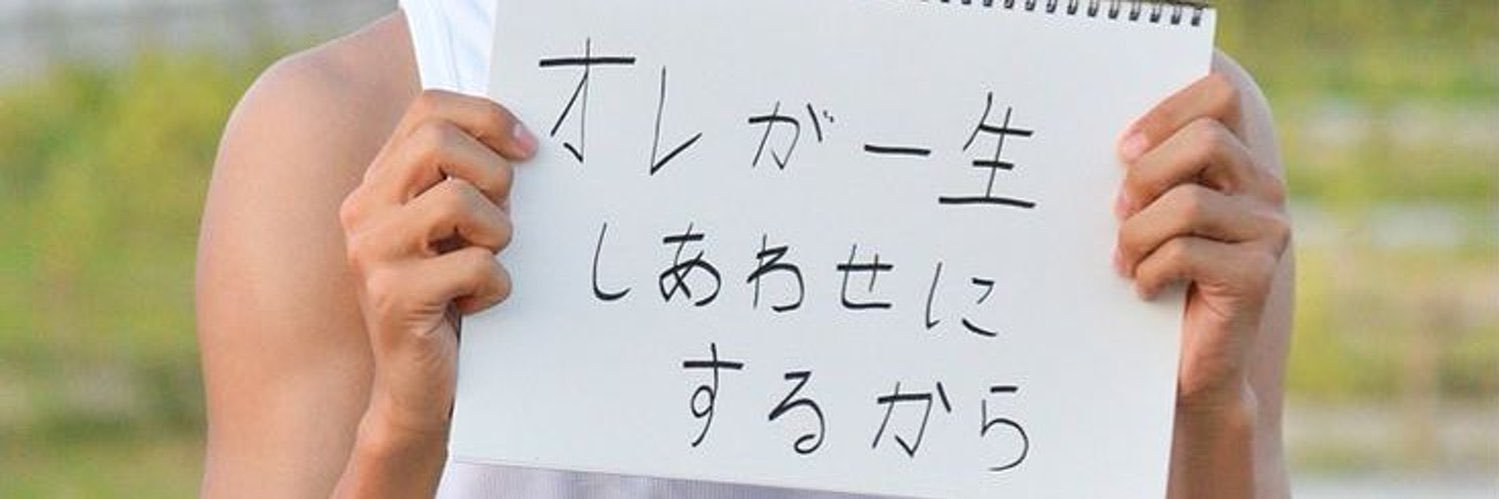 オレが一生
しあわせに
するから